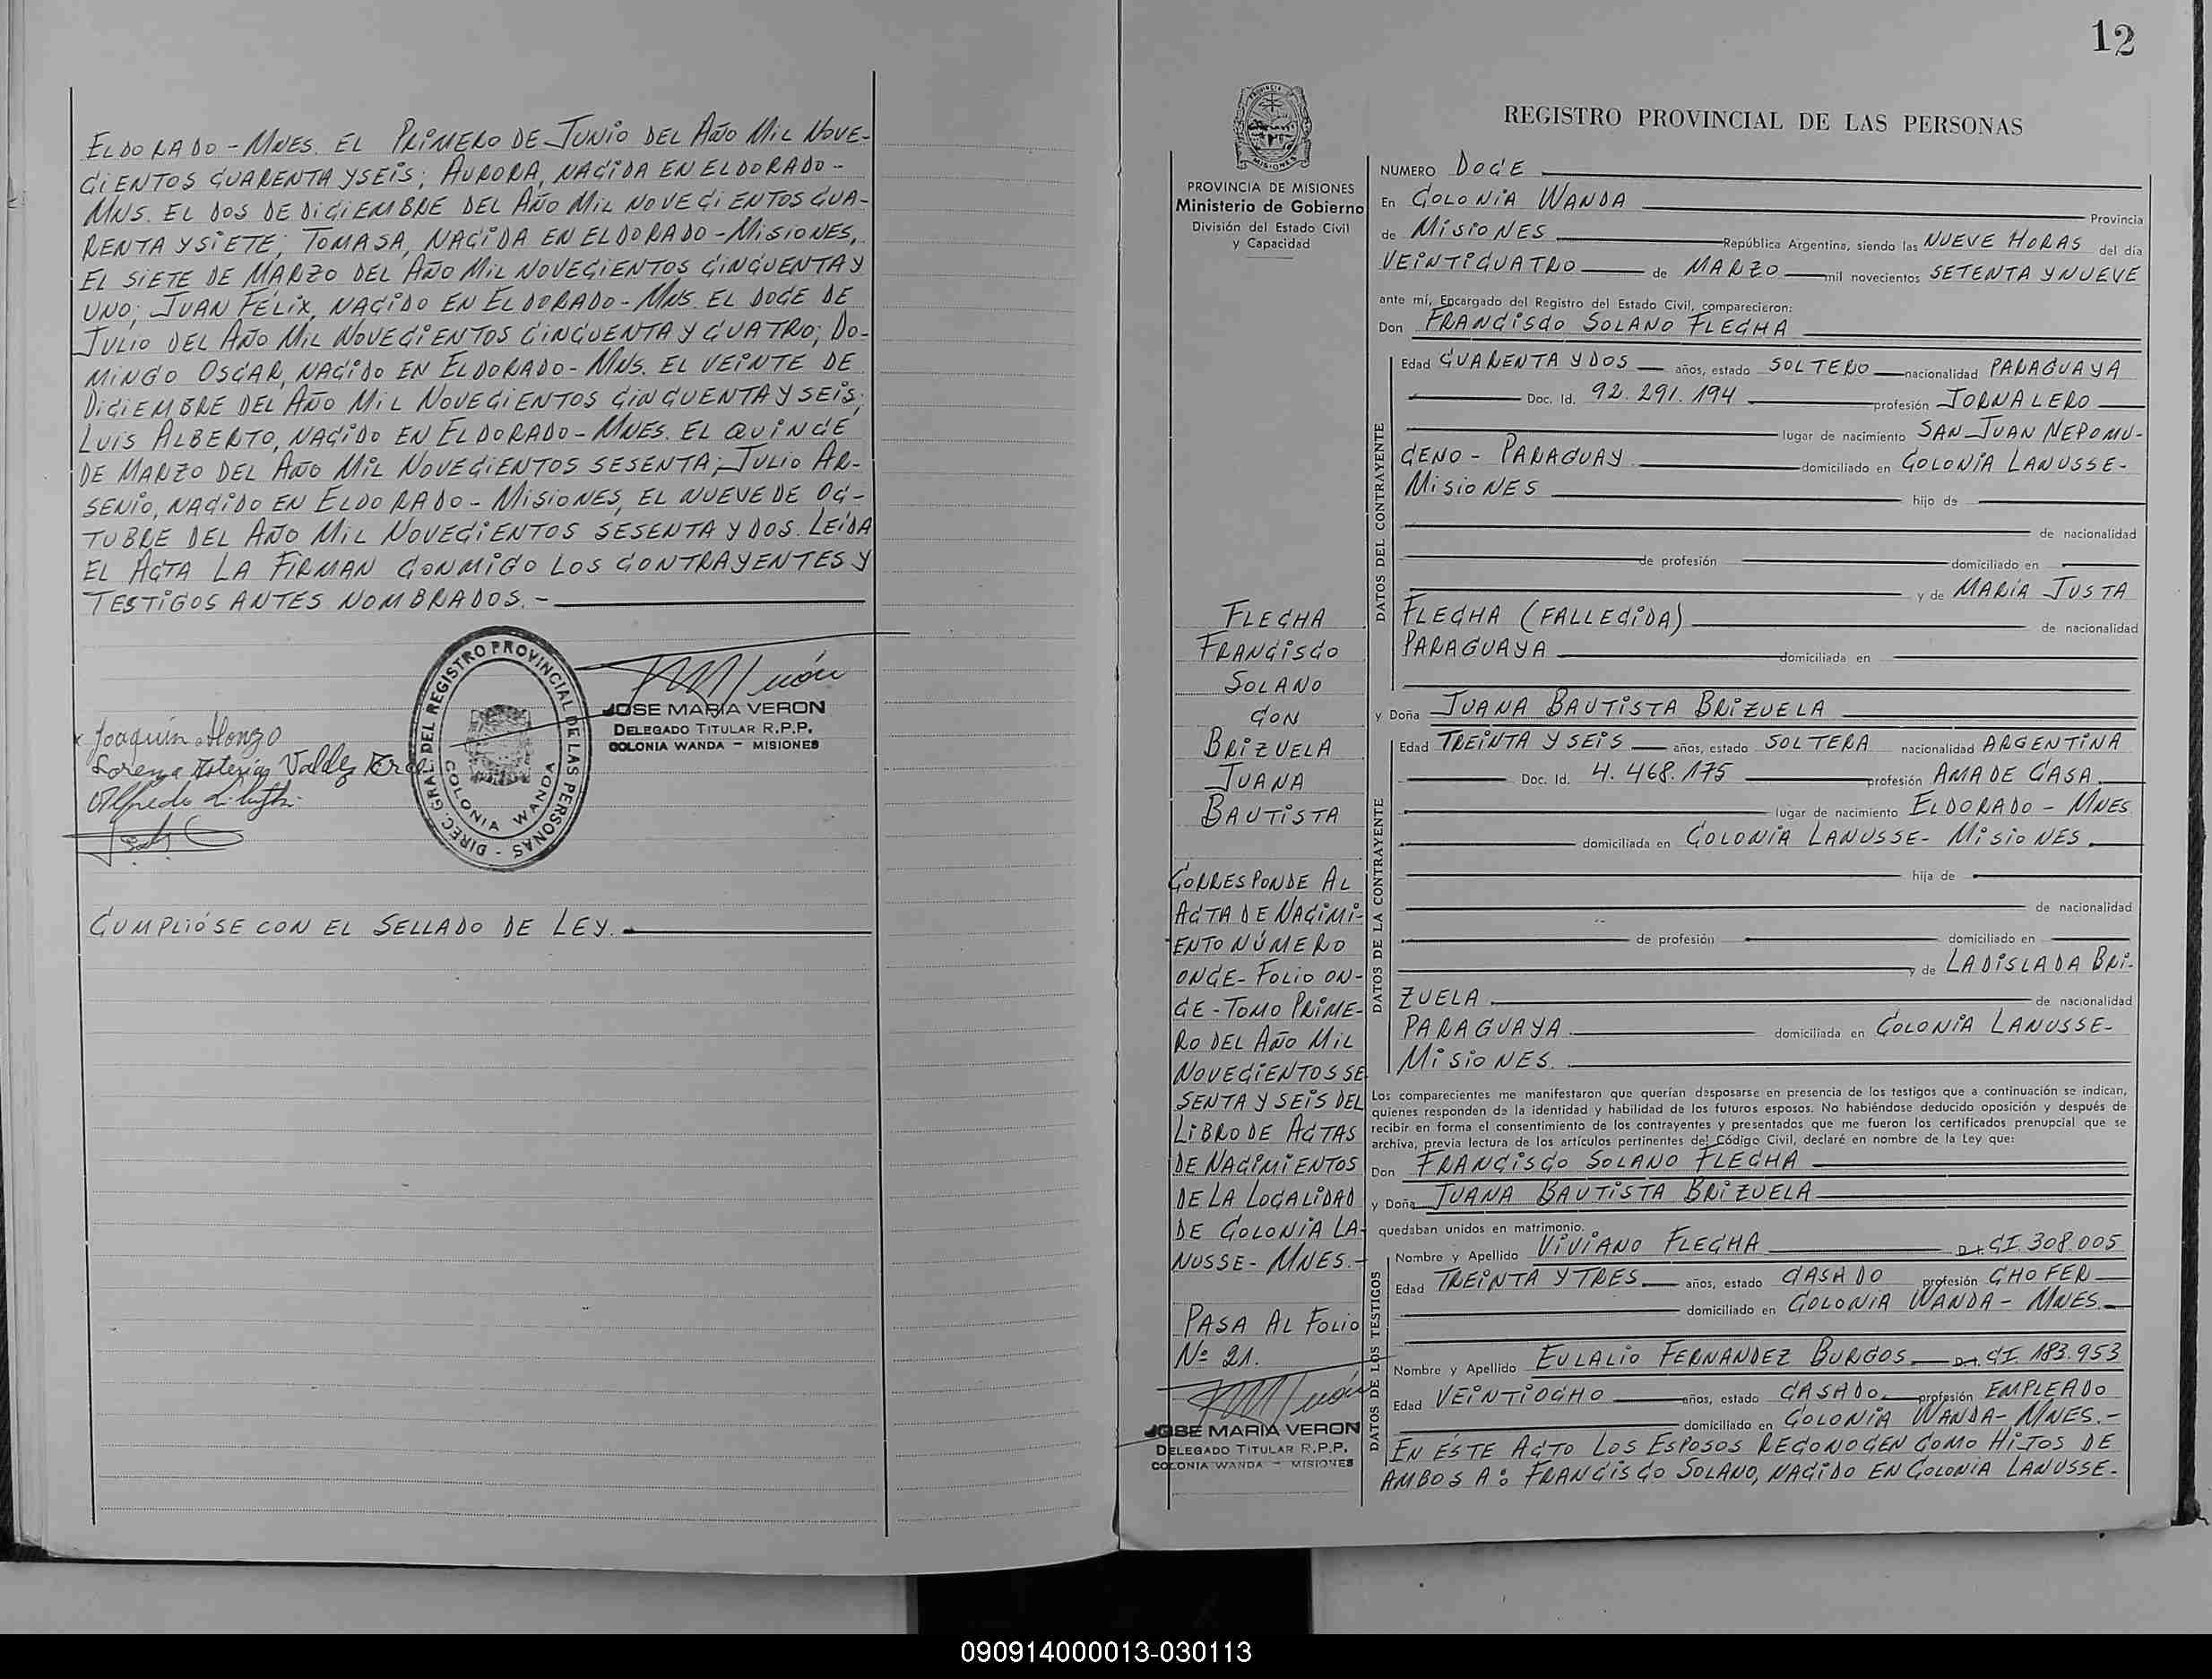 ELDORADO - MNES. EL PRIMERO DE JUNIO DEL AÑO MIL NOVE-
CIENTOS CUARENTA Y SEIS; AURORA, NACIDA EN ELDORADO -
MNS. EL DOS DE DICIEMBRE DEL AÑO MIL NOVECIENTOS CUA-
RENTA Y SIETE; TOMASA, NACIDA EN ELDORADO - MISIONES,
EL SIETE DE MARZO DEL AÑO MIL NOVECIENTOS CINCUENTA Y
UNO; JUAN FÉLIX, NACIDO EN ELDORADO - MNS. EL DOCE DE
JULIO DEL AÑO MIL NOVECIENTOS CINCUENTA Y CUATRO; DO-
MINGO OSCAR, NACIDO EN ELDORADO - MNS. EL VEINTE DE
DICIEMBRE DEL AÑO MIL NOVECIENTOS CINCUENTA Y SEIS;
LUIS ALBERTO, NACIDO EN ELDORADO - MNES. EL QUINCE
DE MARZO DEL AÑO MIL NOVECIENTOS SESENTA; JULIO AR-
SENIO, NACIDO EN ELDORADO - MISIONES, EL NUEVE DE OC-
TUBRE DEL AÑO MIL NOVECIENTOS SESENTA Y DOS. LEÍDA
EL ACTA LA FIRMAN CONMIGO LOS CONTRAYENTES Y
TESTIGOS ANTES NOMBRADOS. -
DIREC. GRAL. DEL REGISTRO PROVINCIAL DE LAS PERSONAS -
COLONIA WANDA
JOSE MARIA VERON
DELEGADO TITULAR R.P.P.
COLONIA WANDA - MISIONES
Joaquín Alonzo
Lorenza Valdez
Alfredo
CUMPLIÓSE CON EL SELLADO DE LEY.
12
PROVINCIA DE MISIONES
Ministerio de Gobierno
División del Estado Civil
y Capacidad
FLECHA
FRANCISCO
SOLANO
CON
BRIZUELA
JUANA
BAUTISTA
CORRESPONDE AL
ACTA DE NACIMI-
ENTO NÚMERO
ONCE - FOLIO ON-
CE - TOMO PRIME-
RO DEL AÑO MIL
NOVECIENTOS SE
SENTA Y SEIS DEL
LIBRO DE ACTAS
DE NACIMIENTOS
DE LA LOCALIDAD
DE COLONIA LA-
NUSSE - MNES. -
PASA AL FOLIO
Nº 21.
JOSE MARIA VERON
DELEGADO TITULAR R.P.P.
COLONIA WANDA - MISIONES
REGISTRO PROVINCIAL DE LAS PERSONAS
NUMERO DOCE
En COLONIA WANDA Provincia
de MISIONES República Argentina, siendo las NUEVE HORAS del día
VEINTICUATRO de MARZO mil novecientos SETENTA Y NUEVE
ante mí, Encargado del Registro del Estado Civil, comparecieron:
Don FRANCISCO SOLANO FLECHA
DATOS DEL CONTRAYENTE
Edad CUARENTA Y DOS años, estado SOLTERO nacionalidad PARAGUAYA
Doc. Id. 92.291.194 profesión JORNALERO
lugar de nacimiento SAN JUAN NEPOMU-
CENO - PARAGUAY domiciliado en COLONIA LANUSSE -
MISIONES hijo de
de nacionalidad
de profesión domiciliado en
y de MARIA JUSTA
FLECHA (FALLECIDA) de nacionalidad
PARAGUAYA domiciliada en
y Doña JUANA BAUTISTA BRIZUELA
DATOS DE LA CONTRAYENTE
Edad TREINTA Y SEIS años, estado SOLTERA nacionalidad ARGENTINA
Doc. Id. 4.468.175 profesión AMA DE CASA
lugar de nacimiento ELDORADO - MNES
domiciliada en COLONIA LANUSSE - MISIONES
hija de
de nacionalidad
de profesión domiciliado en
y de LADISLADA BRI-
ZUELA de nacionalidad
PARAGUAYA domiciliada en COLONIA LANUSSE -
MISIONES.
Los comparecientes me manifestaron que querían desposarse en presencia de los testigos que a continuación se indican,
quienes responden de la identidad y habilidad de los futuros esposos. No habiéndose deducido oposición y después de
recibir en forma el consentimiento de los contrayentes y presentados que me fueron los certificados prenupcial que se
archiva, previa lectura de los artículos pertinentes del Código Civil, declaré en nombre de la Ley que:
Don FRANCISCO SOLANO FLECHA
y Doña JUANA BAUTISTA BRIZUELA
quedaban unidos en matrimonio.
DATOS DE LOS TESTIGOS
Nombre y Apellido VIVIANO FLECHA D.I. CI. 308.005
Edad TREINTA Y TRES años, estado CASADO profesión CHOFER
domiciliado en COLONIA WANDA - MNES.
Nombre y Apellido EULALIO FERNANDEZ BURGOS D.I. CI. 183.953
Edad VEINTIOCHO años, estado CASADO profesión EMPLEADO
domiciliado en COLONIA WANDA - MNES. -
EN ÉSTE ACTO LOS ESPOSOS RECONOCEN COMO HIJOS DE
AMBOS A: FRANCISCO SOLANO, NACIDO EN COLONIA LANUSSE -
090914000013-030113